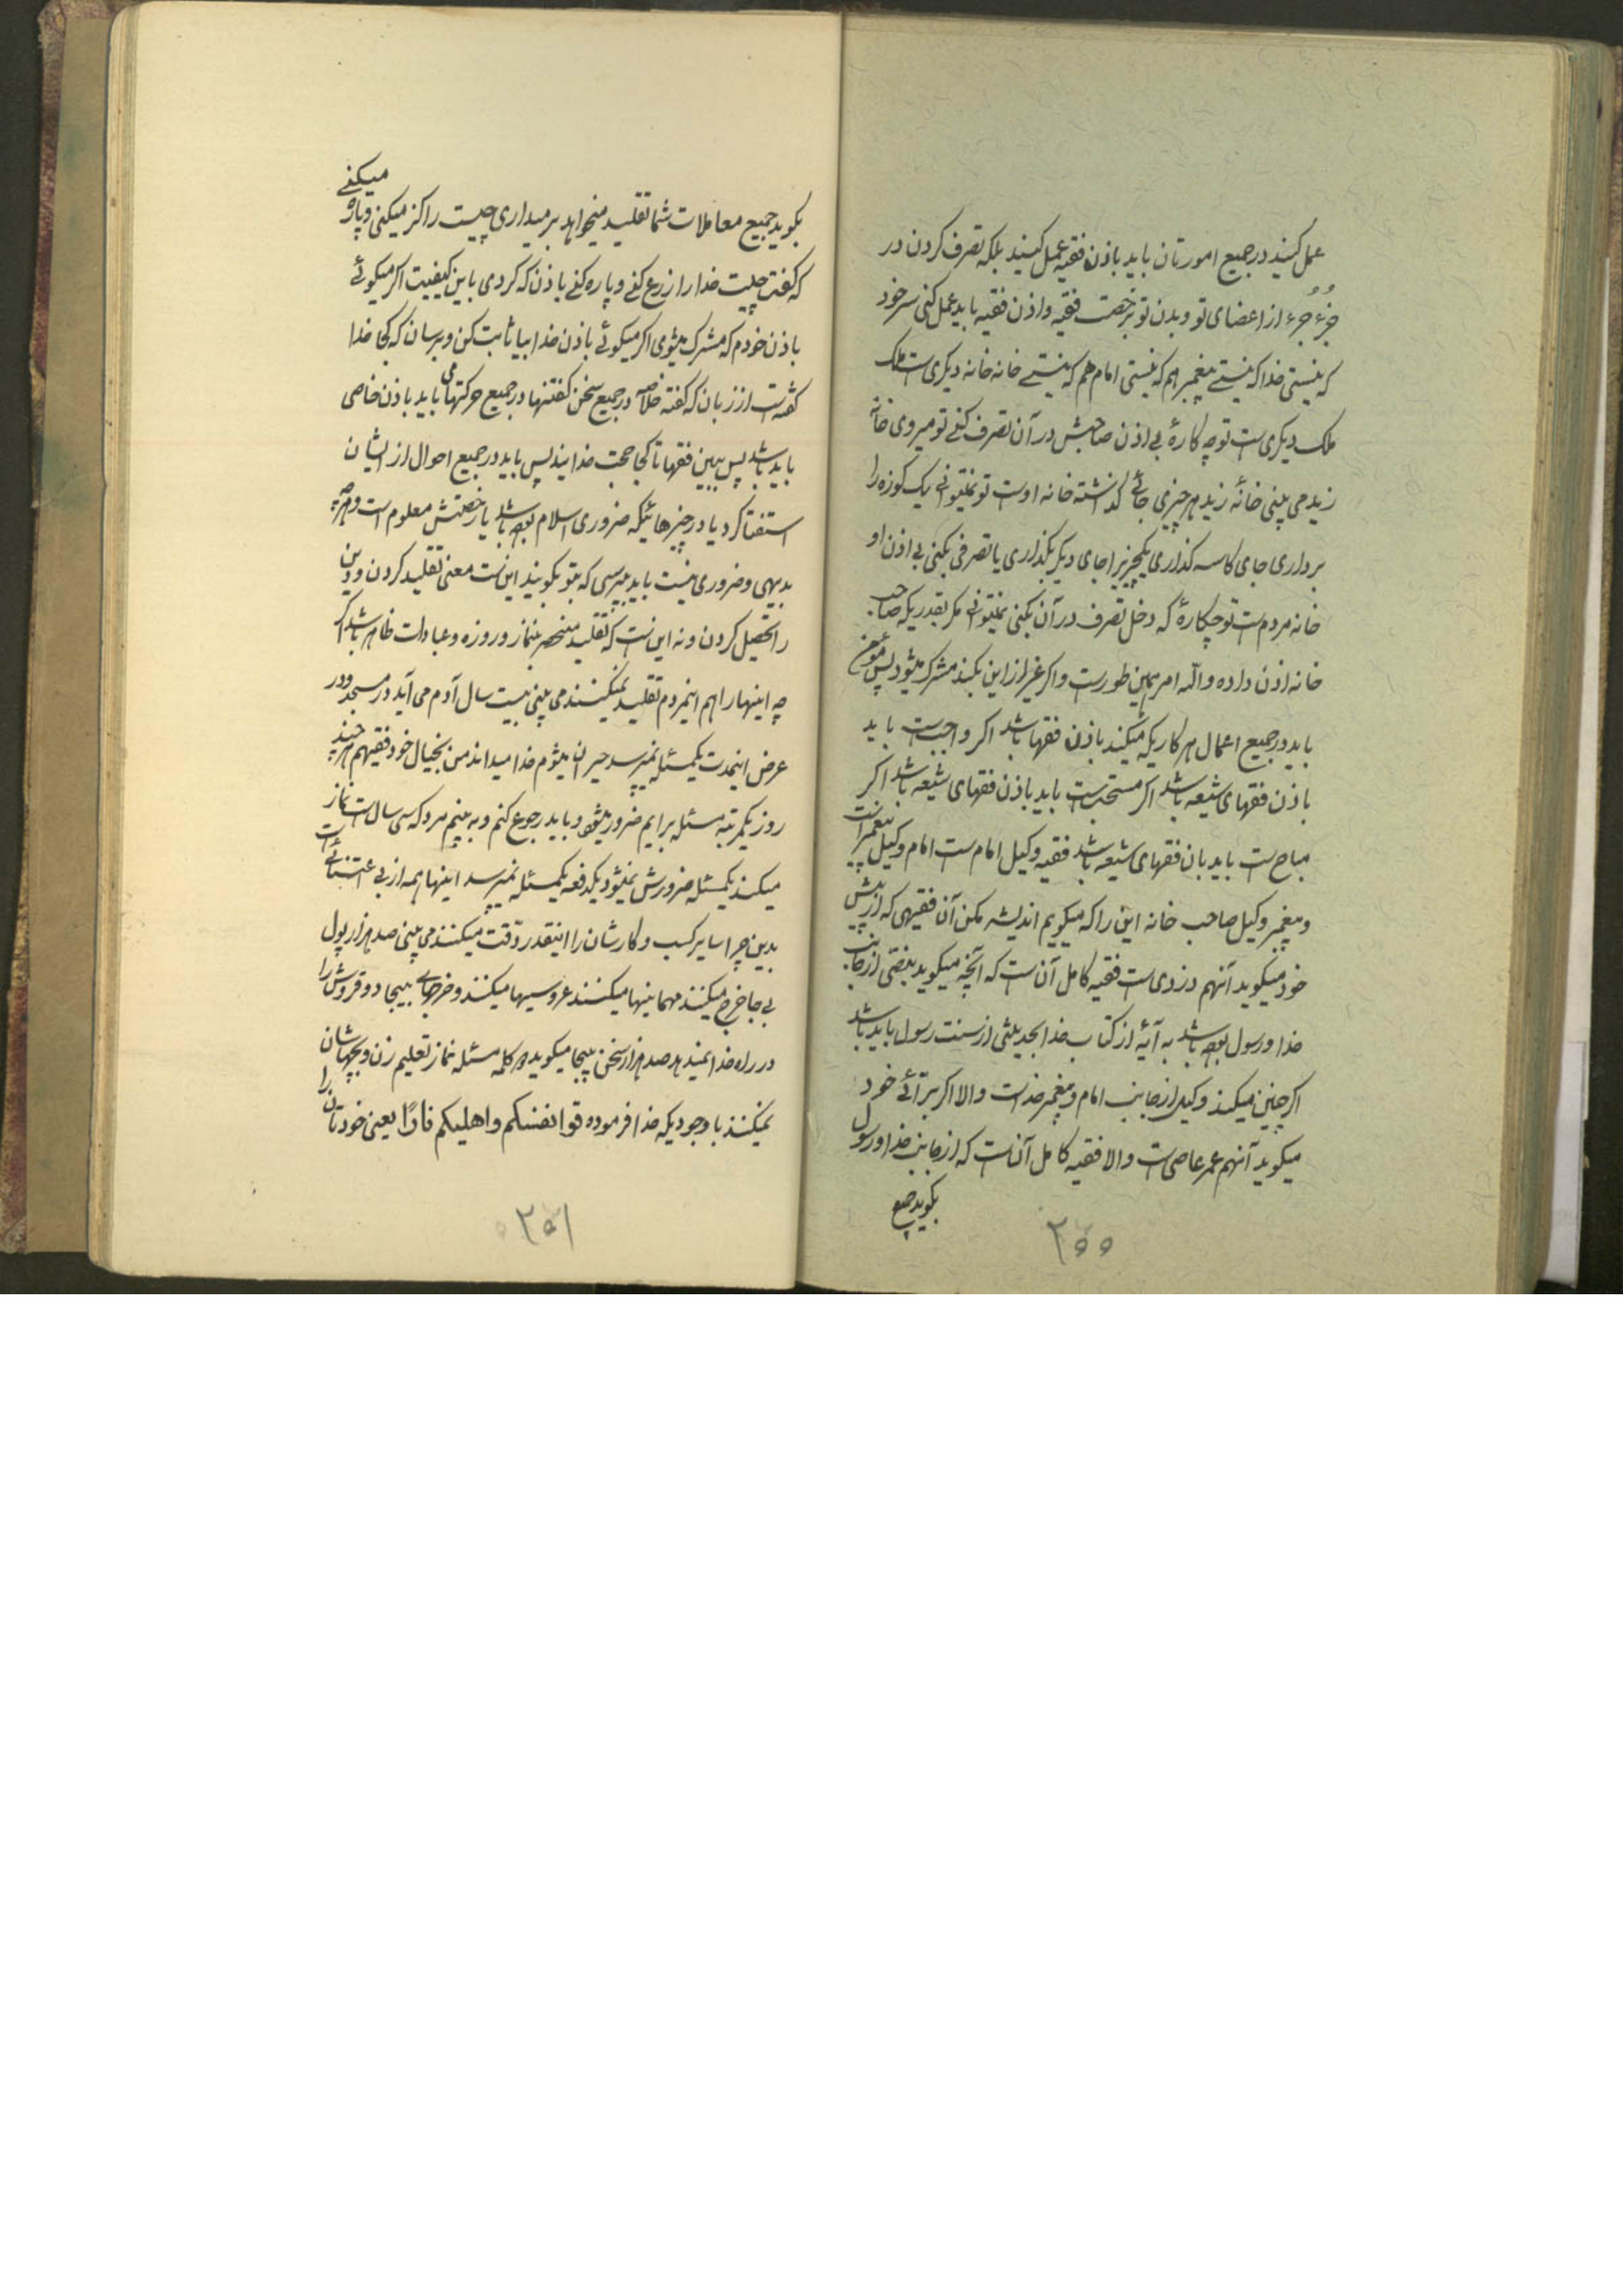 عمل کنید در جمیع امورتان باید باذن فقیه عمل کنید بلکه تصرف کردن در
جُزءِ جُزءِ از اعضای تو و بدن تو برخصت فقیه و اذن فقیه باید عمل کنی سر خود
که نیستی خدا که نیستے پیغمبر هم که نیستی امام هم که نیستے خانه خانه دیکری است ملک
ملک دیکری ست تو چه کارۀ بی اذن صاحبش در آن تصرف کنے تو میروی خانۀ
زید می بینی خانۀ زید هر چیزی جائے کذاشته خانه اوست تو نمیتوانے یک کوزه را
برداری جای کاسه کذاری یکچیزیرا جای دیکر بکذاری یا تصرفی بکنی بی اذن او
خانه مردم ست تو چکارۀ که دخل تصرف در آن بکنی نمیتوانے مکر بقدریکه صاحب
خانه اذن داده والله امر همین طورست و اکر غیر از این بکند مشرک میشود پس مؤمن
باید در جمیع اعمال هر کاریکه میکند باذن فقها باشد اکر واجب ست باید
باذن فقهای شیعه باشد اکر مستحب ست باید باذن فقهای شیعه باشد اکر
مباح ست باید باذن فقهای شیعه باشد فقیه وکیل امام ست امام وکیل پیغمبر است
و پیغمبر وکیل صاحب خانه این را که میکویم اندیشه مکن آن فقیهی که از پیش
خود میکوید آنهم دزدی ست فقیه کامل آن ست که آنچه میکوید بنصّی از جانب
خدا و رسول بوده باشد به آیۀ از کتاب خدا بحدیثی از سنت رسول باید باشد
اکر چنین میکند وکیل از جانب امام و پیغمبر خداست والا اکر برائے خود
میکوید آنهم عمر عاصی ست والا فقیه کامل آن ست که از جانب خدا و رسول
بکوید جمیع
۲۵۵
بکوید جمیع معاملات شما تقلید میخواهد برمیداری چیت را کز میکنی و پاره میکنے
که کفت چیت خدا را زرع کنے و پاره کنے باذن که کردی باین کیفیت اکر میکوئے
باذن خودم که مشرک میشوی اکر میکوئے باذن خدا بیا ثابت کن و برسان که کجا خدا
کفته ست از زبان که کفته خلاصه در جمیع سخن کفتنها در جمیع حرکتها می باید باذن خاصی
باید باشد پس ببین فقها تا کجا حجت خدایند پس باید در جمیع احوال از ایشان
استفتا کرد یا در چیزهائیکه ضروری اسلام بوده باشد یا رخصتش معلوم است و هرچه
بدیهی و ضروری نیست باید بپرسی که بتو بکویند این ست معنی تقلید کردن و دین
را تحصیل کردن و نه این ست که تقلید منحصر بنماز و روزه و عبادات ظاهر باشد اکر
چه اینها را هم اینمردم تقلید نمیکنند می بینی بیست سال آدم می آید در مسجد و در
عرض اینمدت یکمسئله نمیپرسد حیران میشوم خدا میداند من بخیال خود فقیهم هر چند
روز یکمرتبه مسئله برایم ضرور میشود و باید رجوع کنم و به بینم مرد که سی سال ست نماز
میکند یکمسئله ضرورش نمیشود یکدفعه یکمسئله نمیپرسد اینها همه از بی اعتنائے است
بدین چرا سایر کسب و کارشان را اینقدر دقت میکنند می بینی صد هزار پول
بی جا خرج میکنند مهمانیها میکنند عروسیها میکنند و خرجهای بیجا دو قروش را
در راه خدا نمیدهد صد هزار سخن بیجا میکوید دو کلمه مسئله نماز تعلیم زن و بچهاشان
نمیکنند با وجودیکه خدا فرموده قوا انفسکم واهلیکم نارًا یعنی خودتان را
۲۵۱